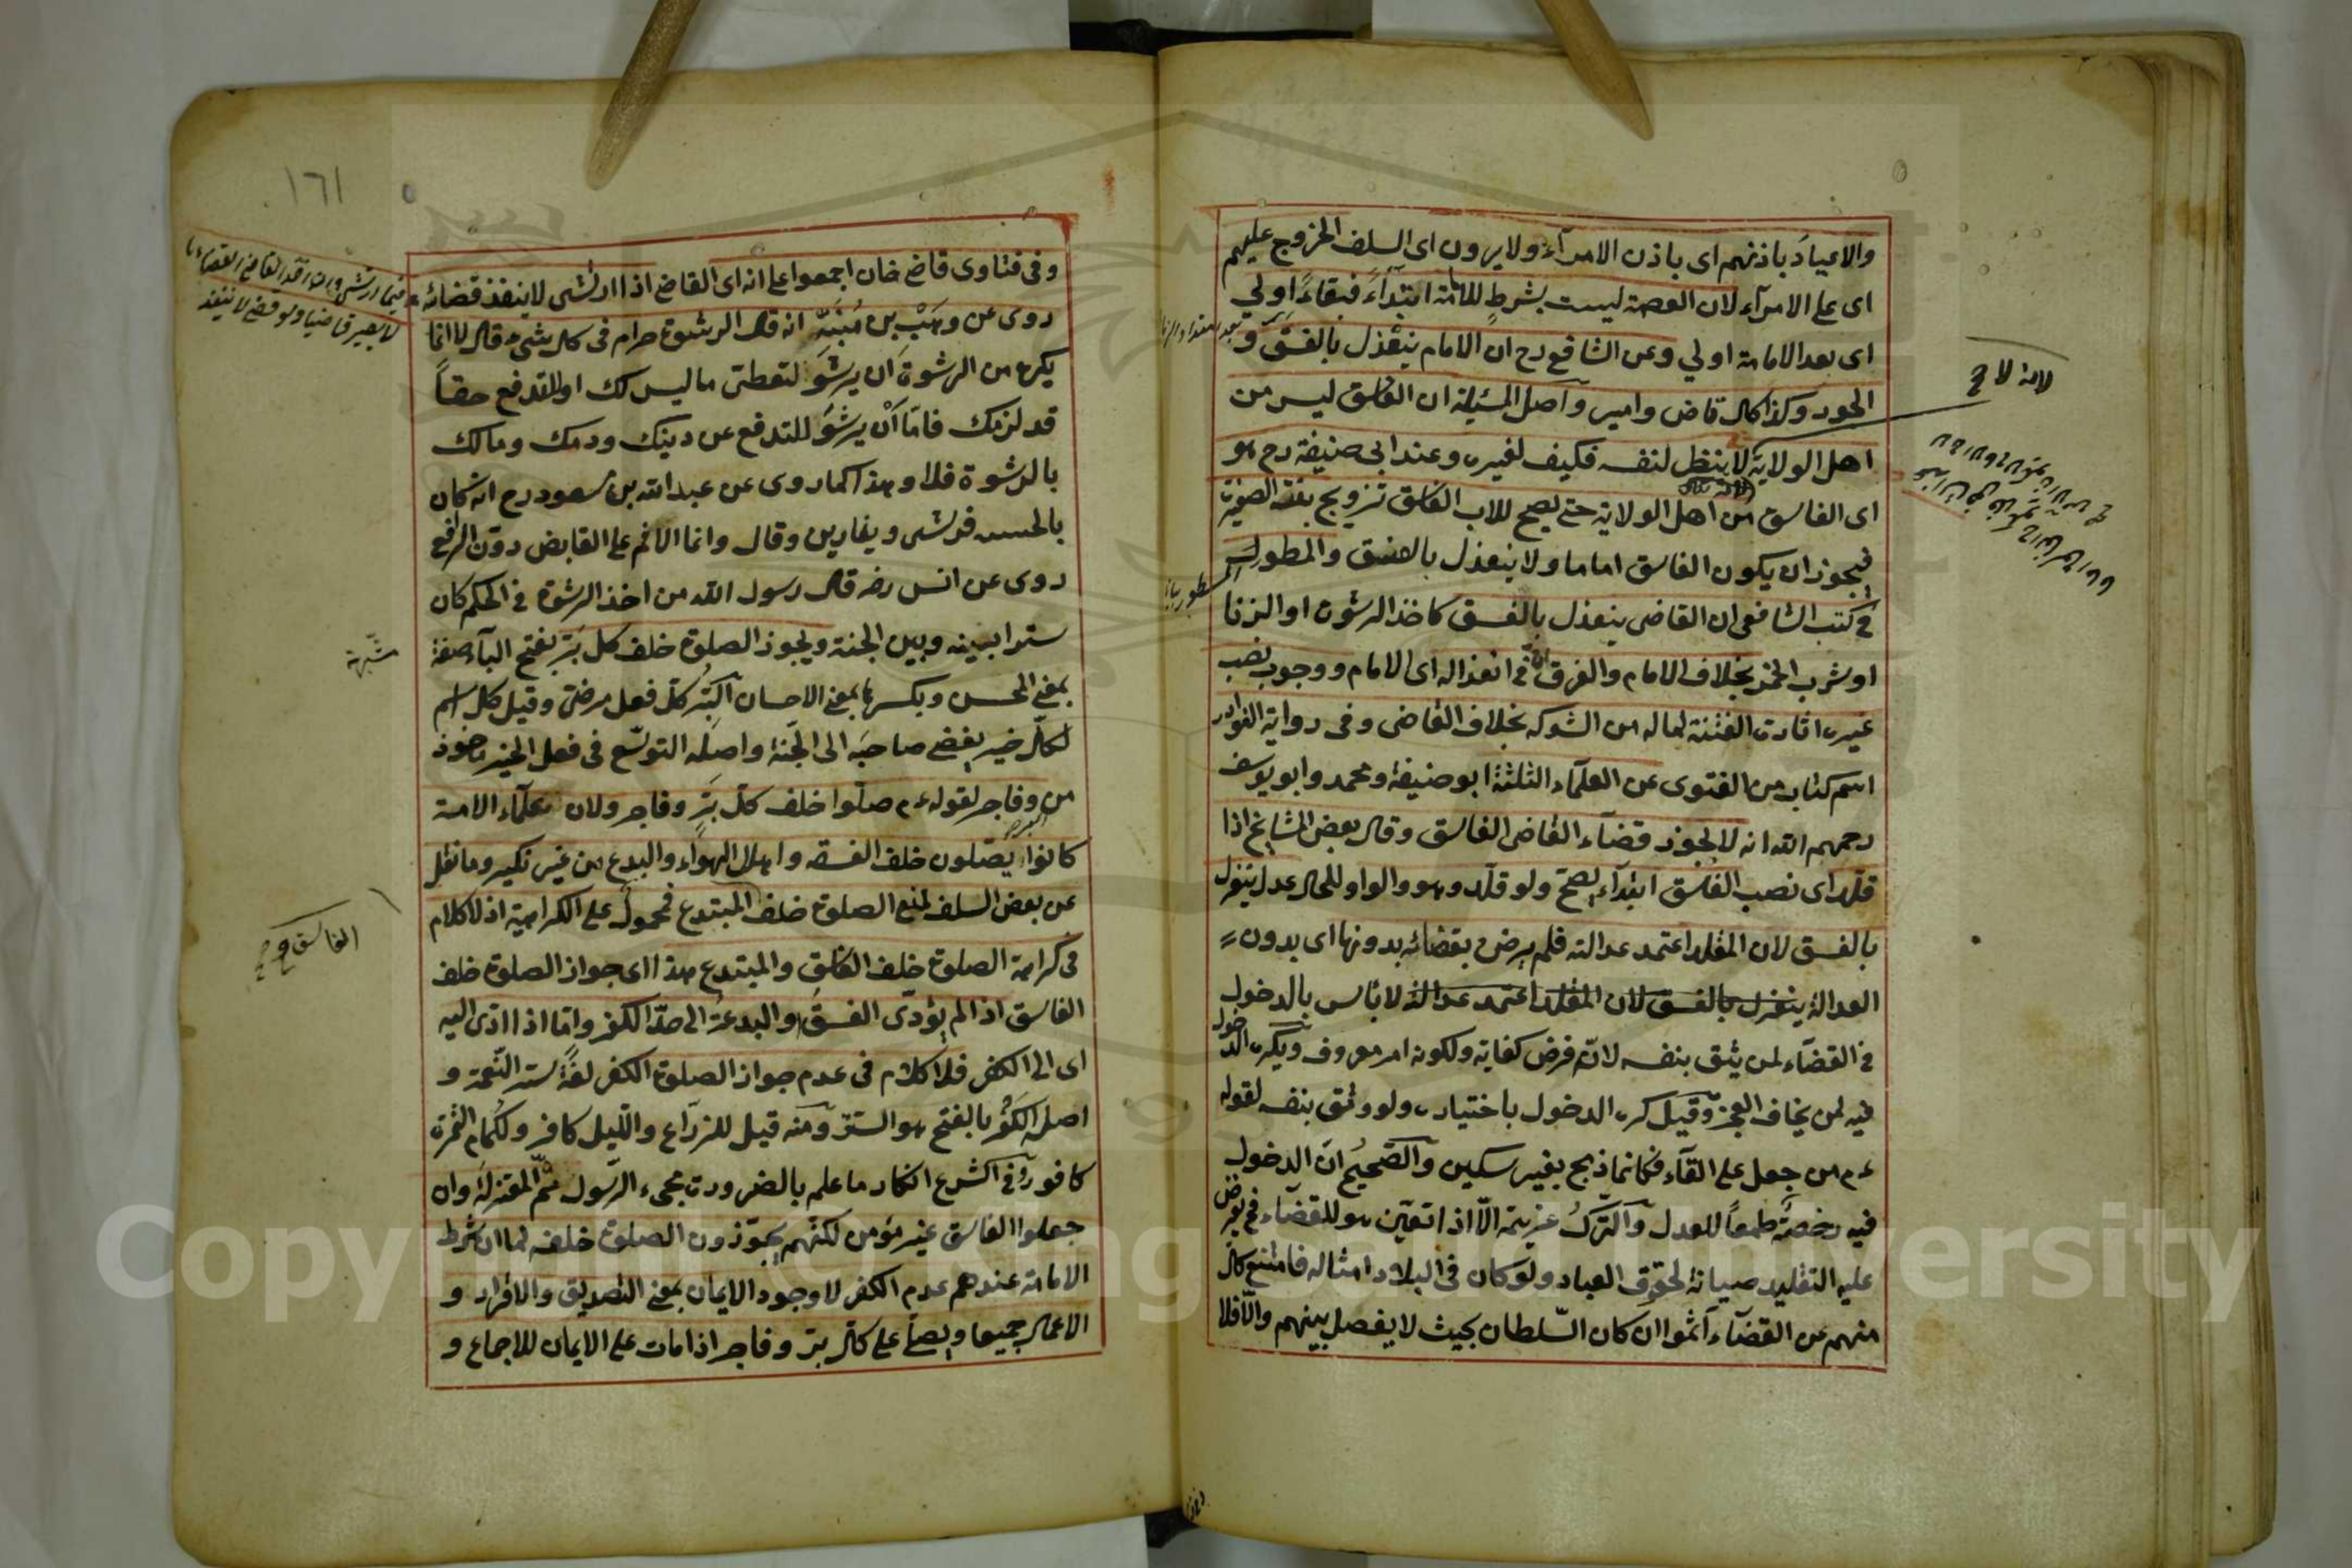 والاعياد باذنهم اى باذن الامرآء ولا يرون اى السلف الخروج عليهم
اى على الامرآء لان العصمة ليست بشرط للامامة ابتدآءً فبقاءً اولي
اى بعد الامامة اولي وعن الشافع رح ان الامام ينعزل بالفسق و
الجور وكذا كل قاض وامير وآصل المسئلة ان الفاسق ليس من
اهل الولاية لا ينظر لنفسه فكيف لغيره وعند ابى حنيفة رح هو
اى الفاسق من اهل الولاية حتى يصح للاب الفاسق تزويج بنته الصغيرة
فيجوز ان يكون الفاسق اماما ولا ينعزل بالفسق والمطور
في كتب الشافعى ان القاضى ينعزل بالفسق كاخذ الرشوة او الزنا
او شرب الخمر بخلاف الامام والفرق ان في انعزاله اى الامام ووجوب نصب
غيره اثارة الفتنة لماله من الشوكه بخلاف القاضى وفى رواية النوادر
اسم كتاب من الفتوى عن العلمآء الثلثة ابو حنيفة ومحمد وابو يوسف
رحمهم الله انه لا يجوز قضآء القاضى الفاسق وقال بعض المشايخ اذا
قلد اى نصب الفاسق ابتدآء يصح ولو قلد وهو والواو للحال عدل ينعزل
بالفسق لان المقلد اعتمد عدالته فلم يرض بقضائه بدونها اى بدون
العدالة ينعزل بالفسق لان المقلد اعتمد عدالته لا بأس بالدخول
في القضآء لمن يثق بنفسه لانه فرض كفاية ولكونه امر معروف ويكره الدخول
فيه لمن يخاف العجز وقيل كره الدخول باختياره ولو وثق بنفسه لقوله
ءم من جعل على القضآء فكانما ذبح بغير سكين والصحيح ان الدخول
فيه رخصة طمعاً للعدل والترك عزيمة الا اذا تعين هو للقضآء فح يفرض
عليه التقليد صيانة لحقوق العباد ولو كان فى البلاد امثاله فامتنع كل
منهم عن القضآء اثموا ان كان السلطان بحيث لا يفصل بينهم والا فلا
المسطور
١٦١
وفى فتاوى قاضى خان اجمعوا على انه اى القاضى اذا ارتشى لا ينفذ قضائه
روى عن وهب بن منبه انه قال الرشوة حرام فى كل شئ قال لا انما
يكره من الرشوة ان يرشو لتعطى ما ليس لك او لتدفع حقاً
قد لزمك فاما ان يرشو لتدفع عن دينك ودمك ومالك
بالرشوة فلا وهذا كما روى عن عبد الله بن مسعود رح انه كان
بالحبسه فرشى وقال وانما الاثم على القابض دون الرافع
روى عن انس رضه قال رسول الله من اخذ الرشوة فى الحكم كان
سترا بينه وبين الجنة ويجوز الصلوة خلف كل بر بفتح البآء صفة
بمعنى المحسن وبكسرها بمعنى الاحسان البر كل فعل مرضى وقيل كل اسم
لكل خير يفضى صاحبه الى الجنة واصله التوسع فى فعل الخير مأخوذ
من وفاجر لقوله ءم صلوا خلف كل بر وفاجر ولان علمآء الامة
كانوا يصلون خلف الفسقه واهل الهوآء والبدع من غير نكير وما نقل
عن بعض السلف لمنع الصلوة خلف المبتدع فمحمول على الكراهية اذ لا كلام
فى كراهة الصلوة خلف الفاسق والمبتدع هذا اى جواز الصلوة خلف
الفاسق اذا لم يؤدى الفسق والبدعة الى حد الكفر واما اذا ادى اليه
اى الى الكفر فلا كلام فى عدم جواز الصلوة الكفر لغةً ستر النعمة و
اصله الكفر بالفتح هو الستر ومنه قيل للزراع والليل كافر ولكمام الثمرة
كافور وفى الشرع انكار ما علم بالضرورة مجيء الرسول ثم المعتزلة وان
جعلوا الفاسق غير مؤمن لكنهم يجوزون الصلوة خلفه لما ان شرط
الامامة عندهم عدم الكفر لا وجود الايمان بمعنى التصديق والاقرار و
الاعمال جميعا ويصلى على كل بر وفاجر اذا مات على الايمان للاجماع و
Copyright © King Saud University